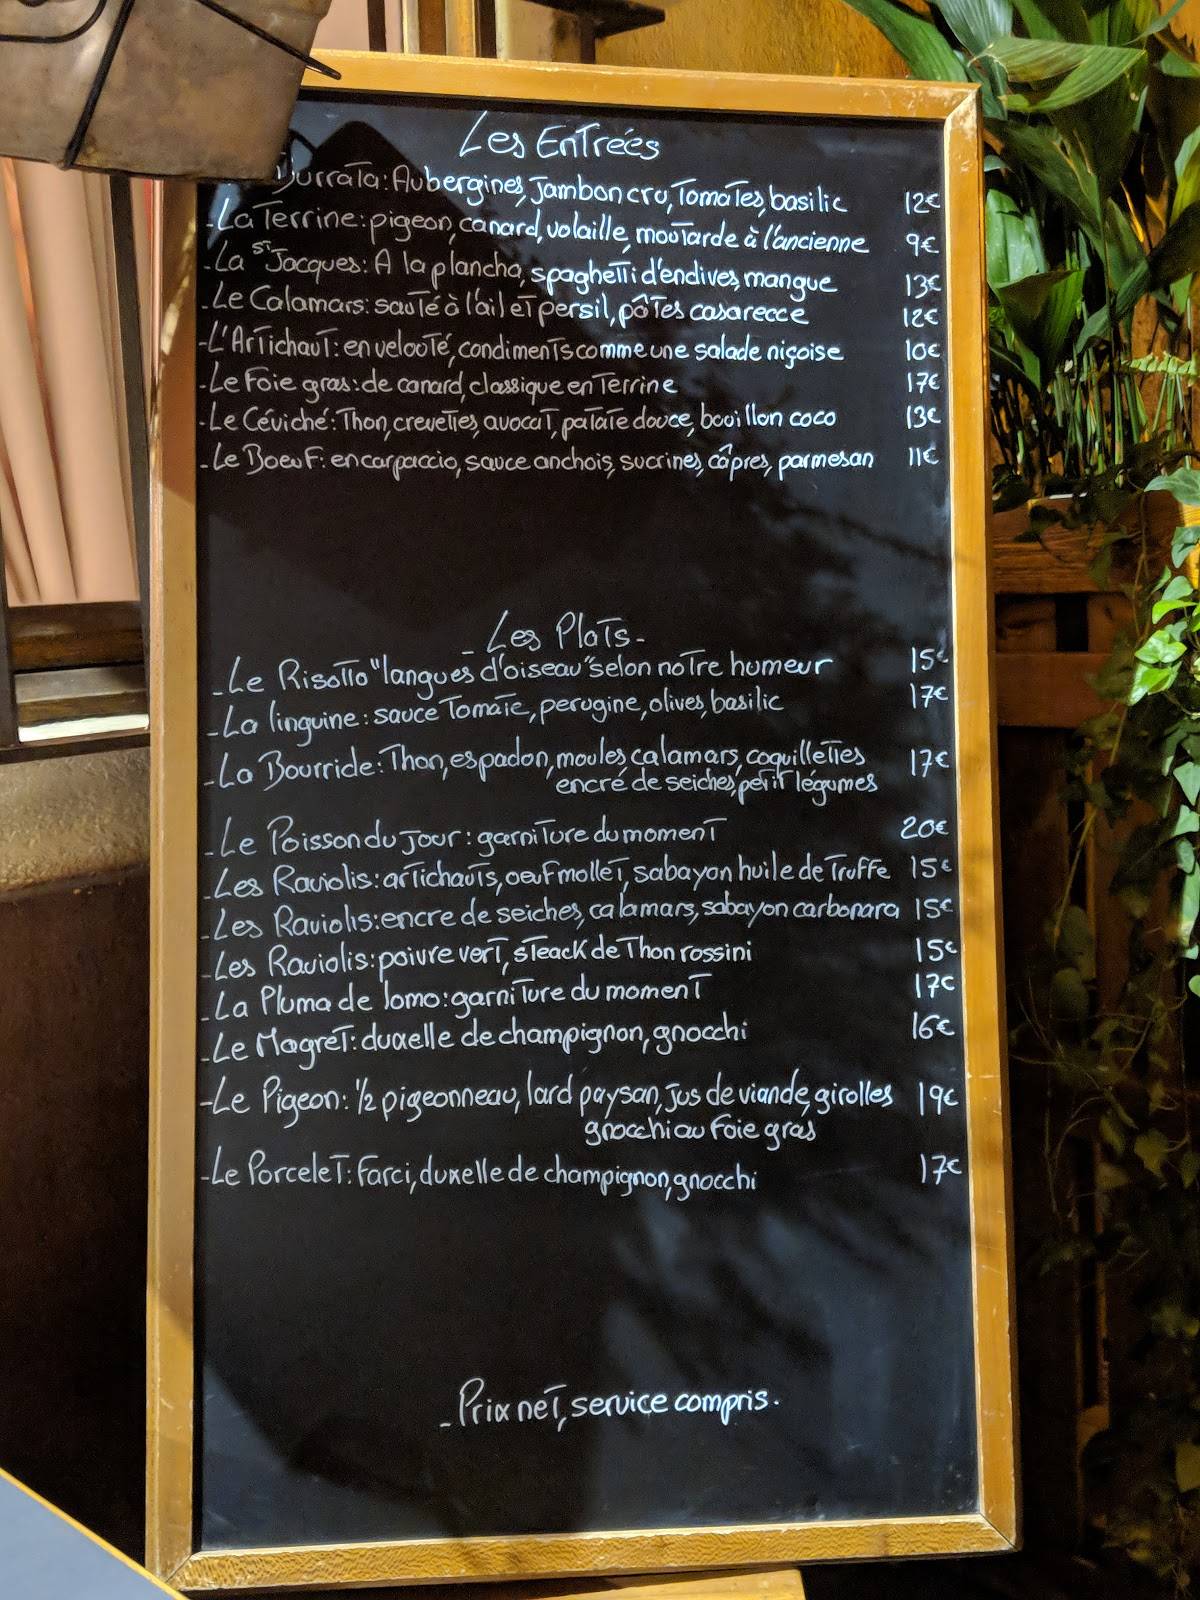 Les Entrées
Burrata: Aubergines, Jambon cru, Tomates, basilic 12€
-La Terrine: pigeon, canard, volaille, moutarde à l'ancienne 9€
-La St Jacques: A la plancha, spaghetti d'endives, mangue 13€
-Le Calamars: sauté à l'ail et persil, pôtes casarecce 12€
-L'Artichaut: en velouté, condiments comme une salade niçoise 10€
-Le Foie gras: de canard, classique en Terrine 17€
-Le Céviché: Thon, crevettes, avocat, patate douce, bouillon coco 13€
-Le Boeuf: en carpaccio, sauce anchois, sucrines, câpres, parmesan 11€
-Les Plats-
-Le Risotto "langues d'oiseau" selon notre humeur 15€
-La linguine: sauce Tomate, perugine, olives, basilic 17€
-La Bourride: Thon, espadon, moules, calamars, coquillettes 17€
encré de seiches, petit légumes
-Le Poisson du Jour: garniture du moment 20€
-Les Raviolis: artichauts, oeuf mollet, sabayon huile de Truffe 15€
-Les Raviolis: encre de seiches, calamars, sabayon carbonara 15€
-Les Raviolis: poivre vert, steack de Thon rossini 15€
-La Pluma de lomo: garniture du moment 17€
-Le Magret: duxelle de champignon, gnocchi 16€
-Le Pigeon: 1/2 pigeonneau, lard paysan, jus de viande, girolles 19€
gnocchi au Foie gras
-Le Porcelet: Farci, duxelle de champignon, gnocchi 17€
-Prix net, service compris.